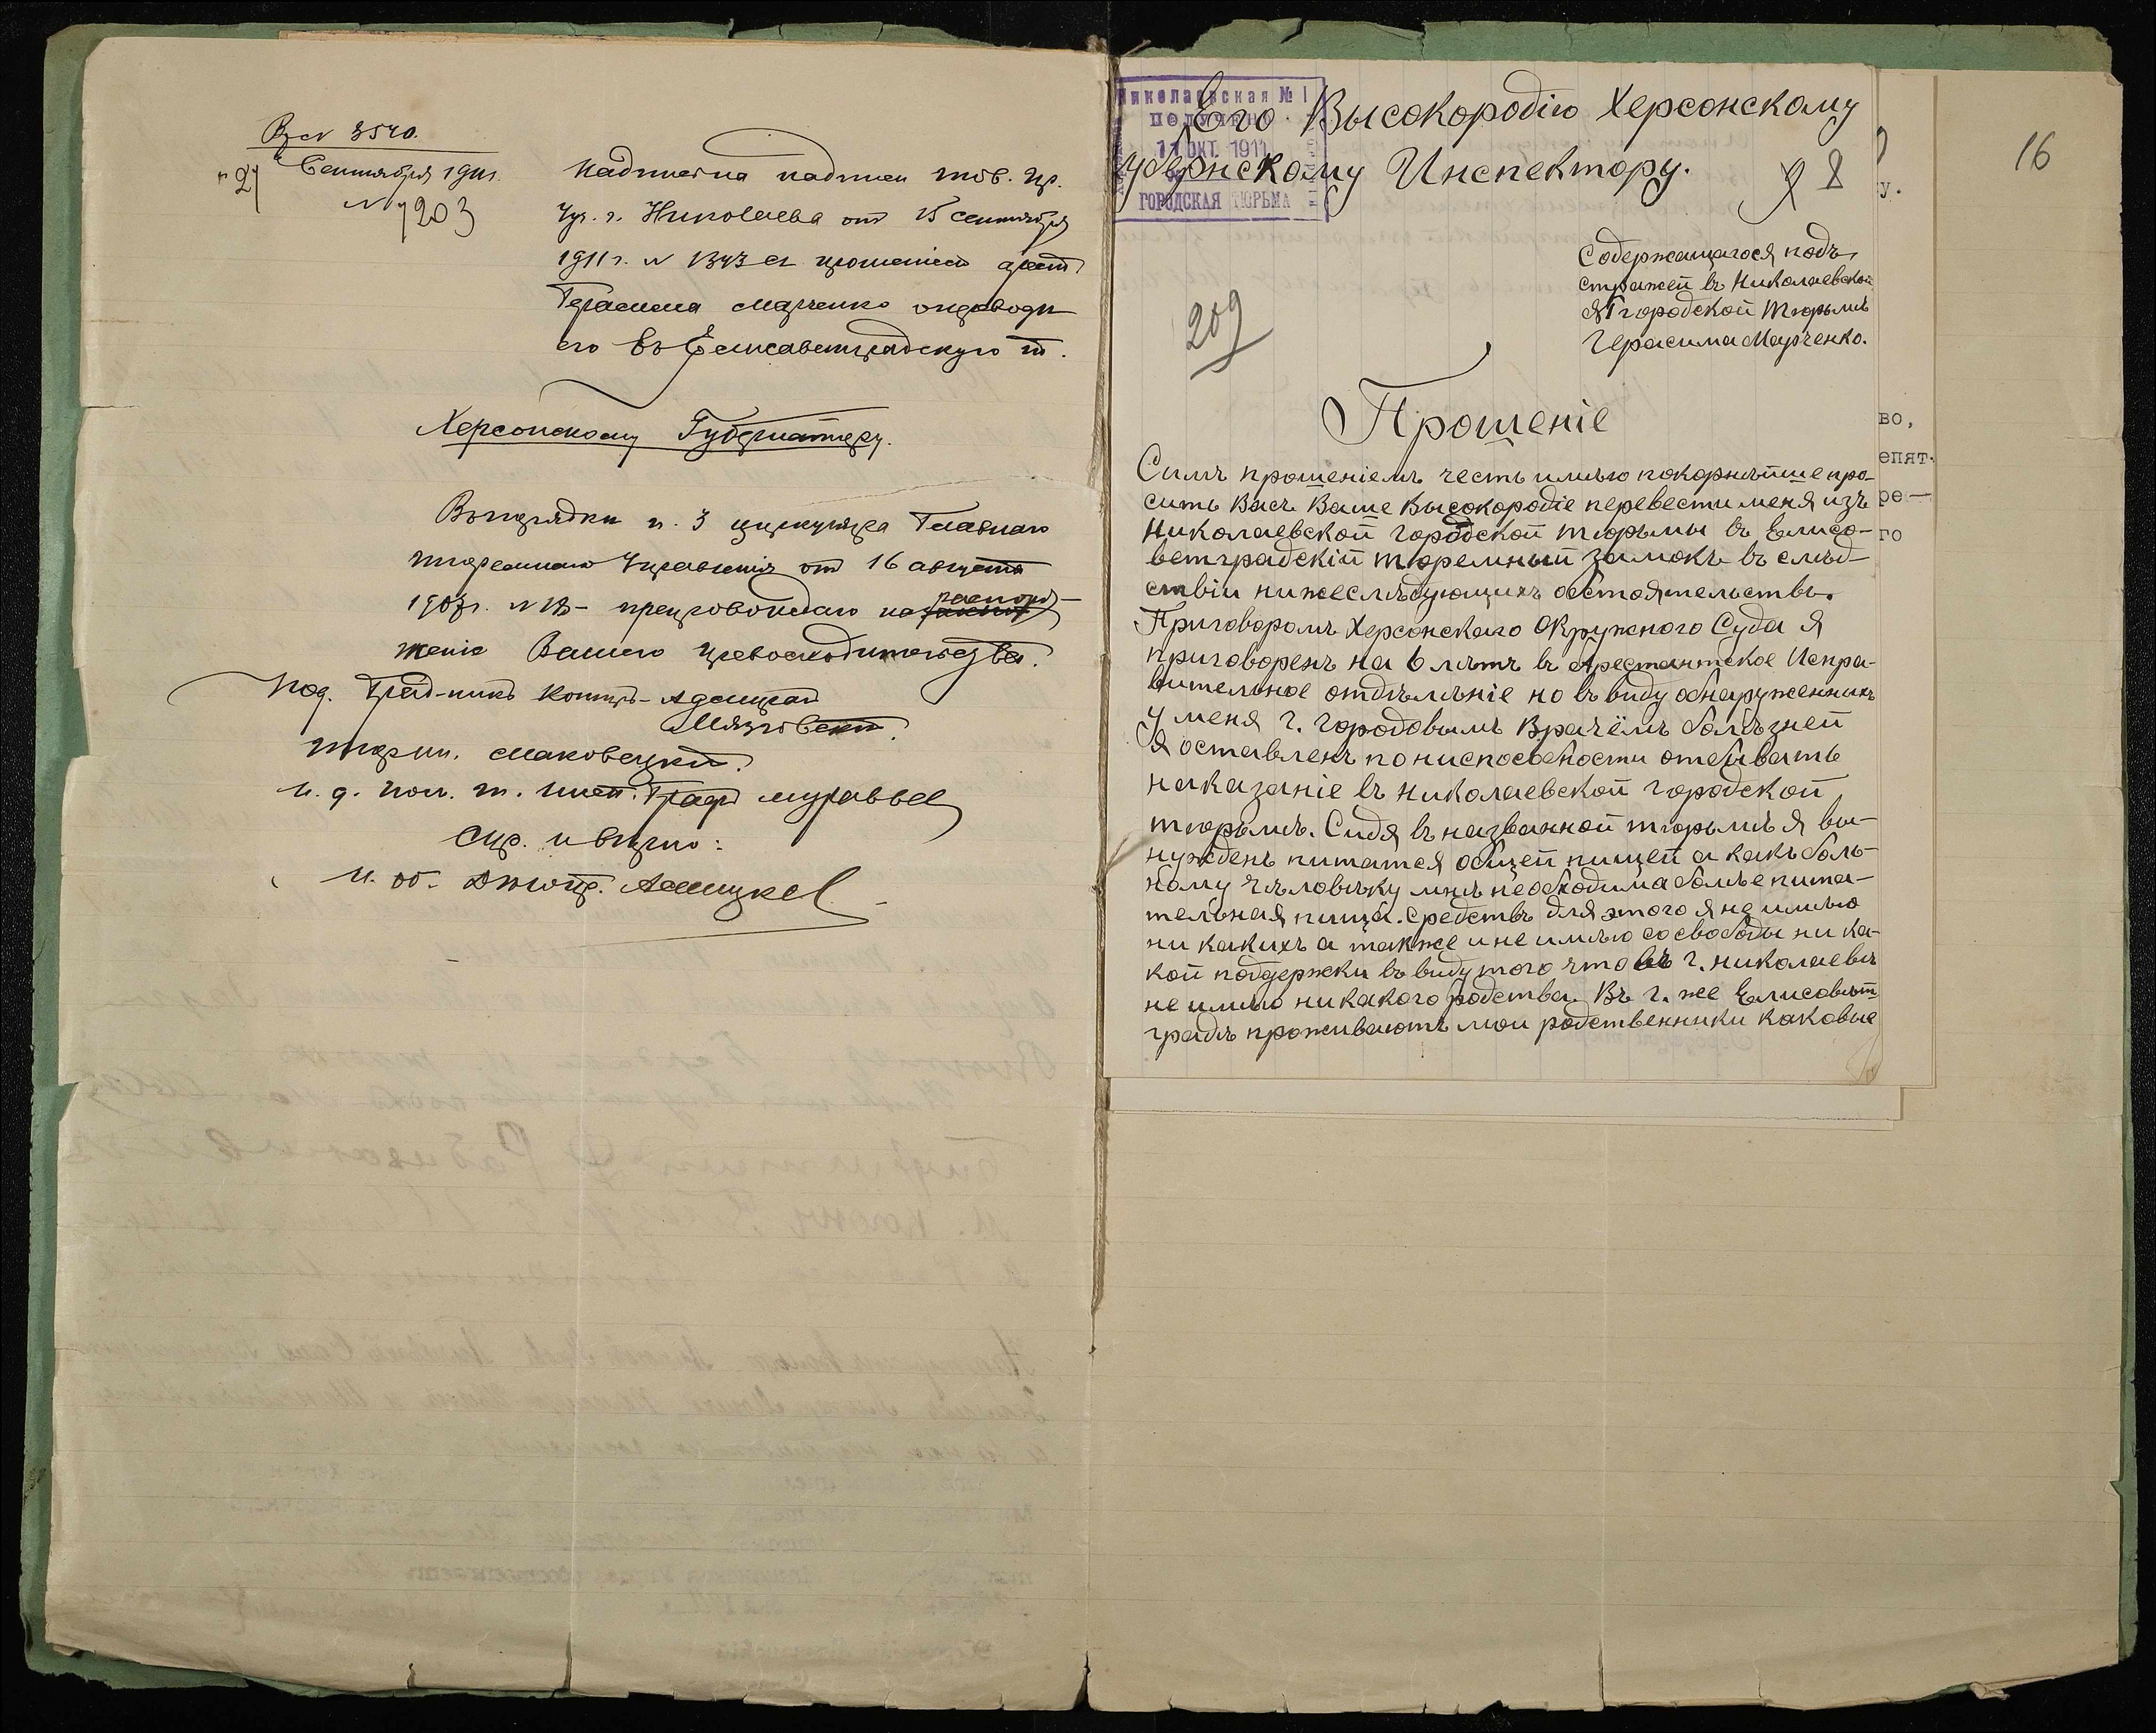 Вх № 3540.
"27" Сентября 1911 г.
№ 7203
Надпись на надписи тов. пр.
Хер. г. Николаева от 15 сентября
1911 г. № 1343 съ прошеніем арест.
Герасима Марченко о переводѣ
его въ Елисаветградскую т.
Херсонскому Губернатору.
Въ порядкѣ п. 3 циркуляра Главнаго
Тюремнаго Управленія от 16 августа
1907 г. № 18 - препровождаю на распоря-
женіе Вашего Превосходительства.
Под.
Маковецкій.
И. д. пом. т. инсп. Граф Муравьев
Свр. и вѣрно:
И. об.
Николаевская № 1
ПОЛУЧЕНО
11 ОКТ. 1911
ГОРОДСКАЯ ТЮРЬМА
Его Высокородію Херсонскому
Губернскому Инспектору.
28
16
у.
Содержащагося подъ
стражей въ Николаевской
№1 городской тюрьмѣ
Герасима Марченко.
209
Прошеніе
Симъ прошеніемъ честь имѣю покорнѣйше про-
сить Васъ Ваше Высокородіе перевести меня изъ
Николаевской городской тюрьмы въ Елисо-
ветградскій тюремный замокъ въ слѣд-
ствіи нижеслѣдующихъ обстоятельствъ.
Приговоромъ Херсонскаго Окружного Суда я
приговоренъ на 6 лѣтъ въ Арестантское Испра-
вительное отдѣлѣніе но въ виду обнаруженныхъ
у меня г. городовымъ Врачёмъ болѣзней
я оставленъ по ниспособности отбывать
наказаніе въ николаевской городской
тюрьмѣ. Сидя въ названной тюрьмѣ я вы-
нужденъ питатся общей пищей а какъ боль-
ному чѣловѣку мнѣ необходима болѣе пита-
тельная пища. Средствъ для этого я не имѣю
ни какихъ а также и не имѣю со свободы ни ка-
кой поддержки въ виду того что въ г. николаевѣ
не имѣю никакого родства. Въ г. же Елисовѣт-
градѣ проживаютъ мои родственники каковые
во,
епят.
ре-
го